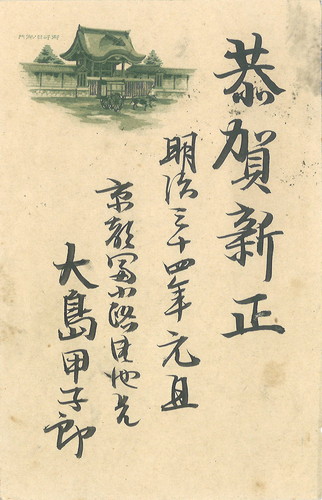 恭賀新正
明治三十四年元旦
京都冨小路
大島甲子郎